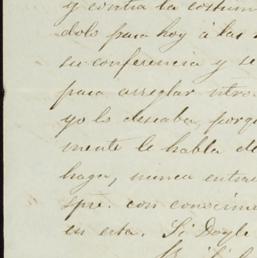 y contra la costum
dolo para hoy á las
su conferencia y se
para arreglar ntro.
yo lo deseaba, porqu
mente le habla de
haga, nunca entra
spre. con conocim
en esta. Si Doyle